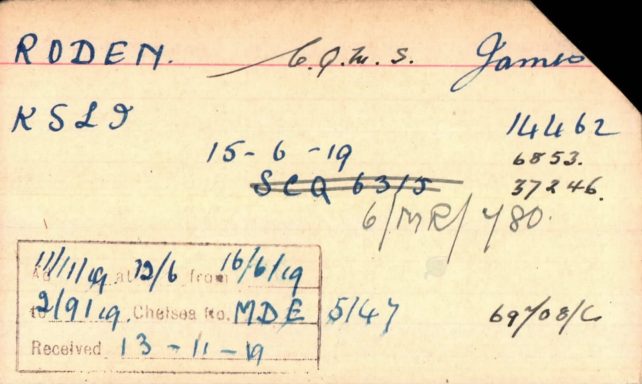 RODEN. C.Q.M.S. James
KSLI 14462
15-6-19 6853.
SCQ 6315 37246.
6/MR/780.
11/11/19 at 12/6 from 16/6/19
to 2/9/19. Chelsea No. MDE 5147
Received 13-11-19